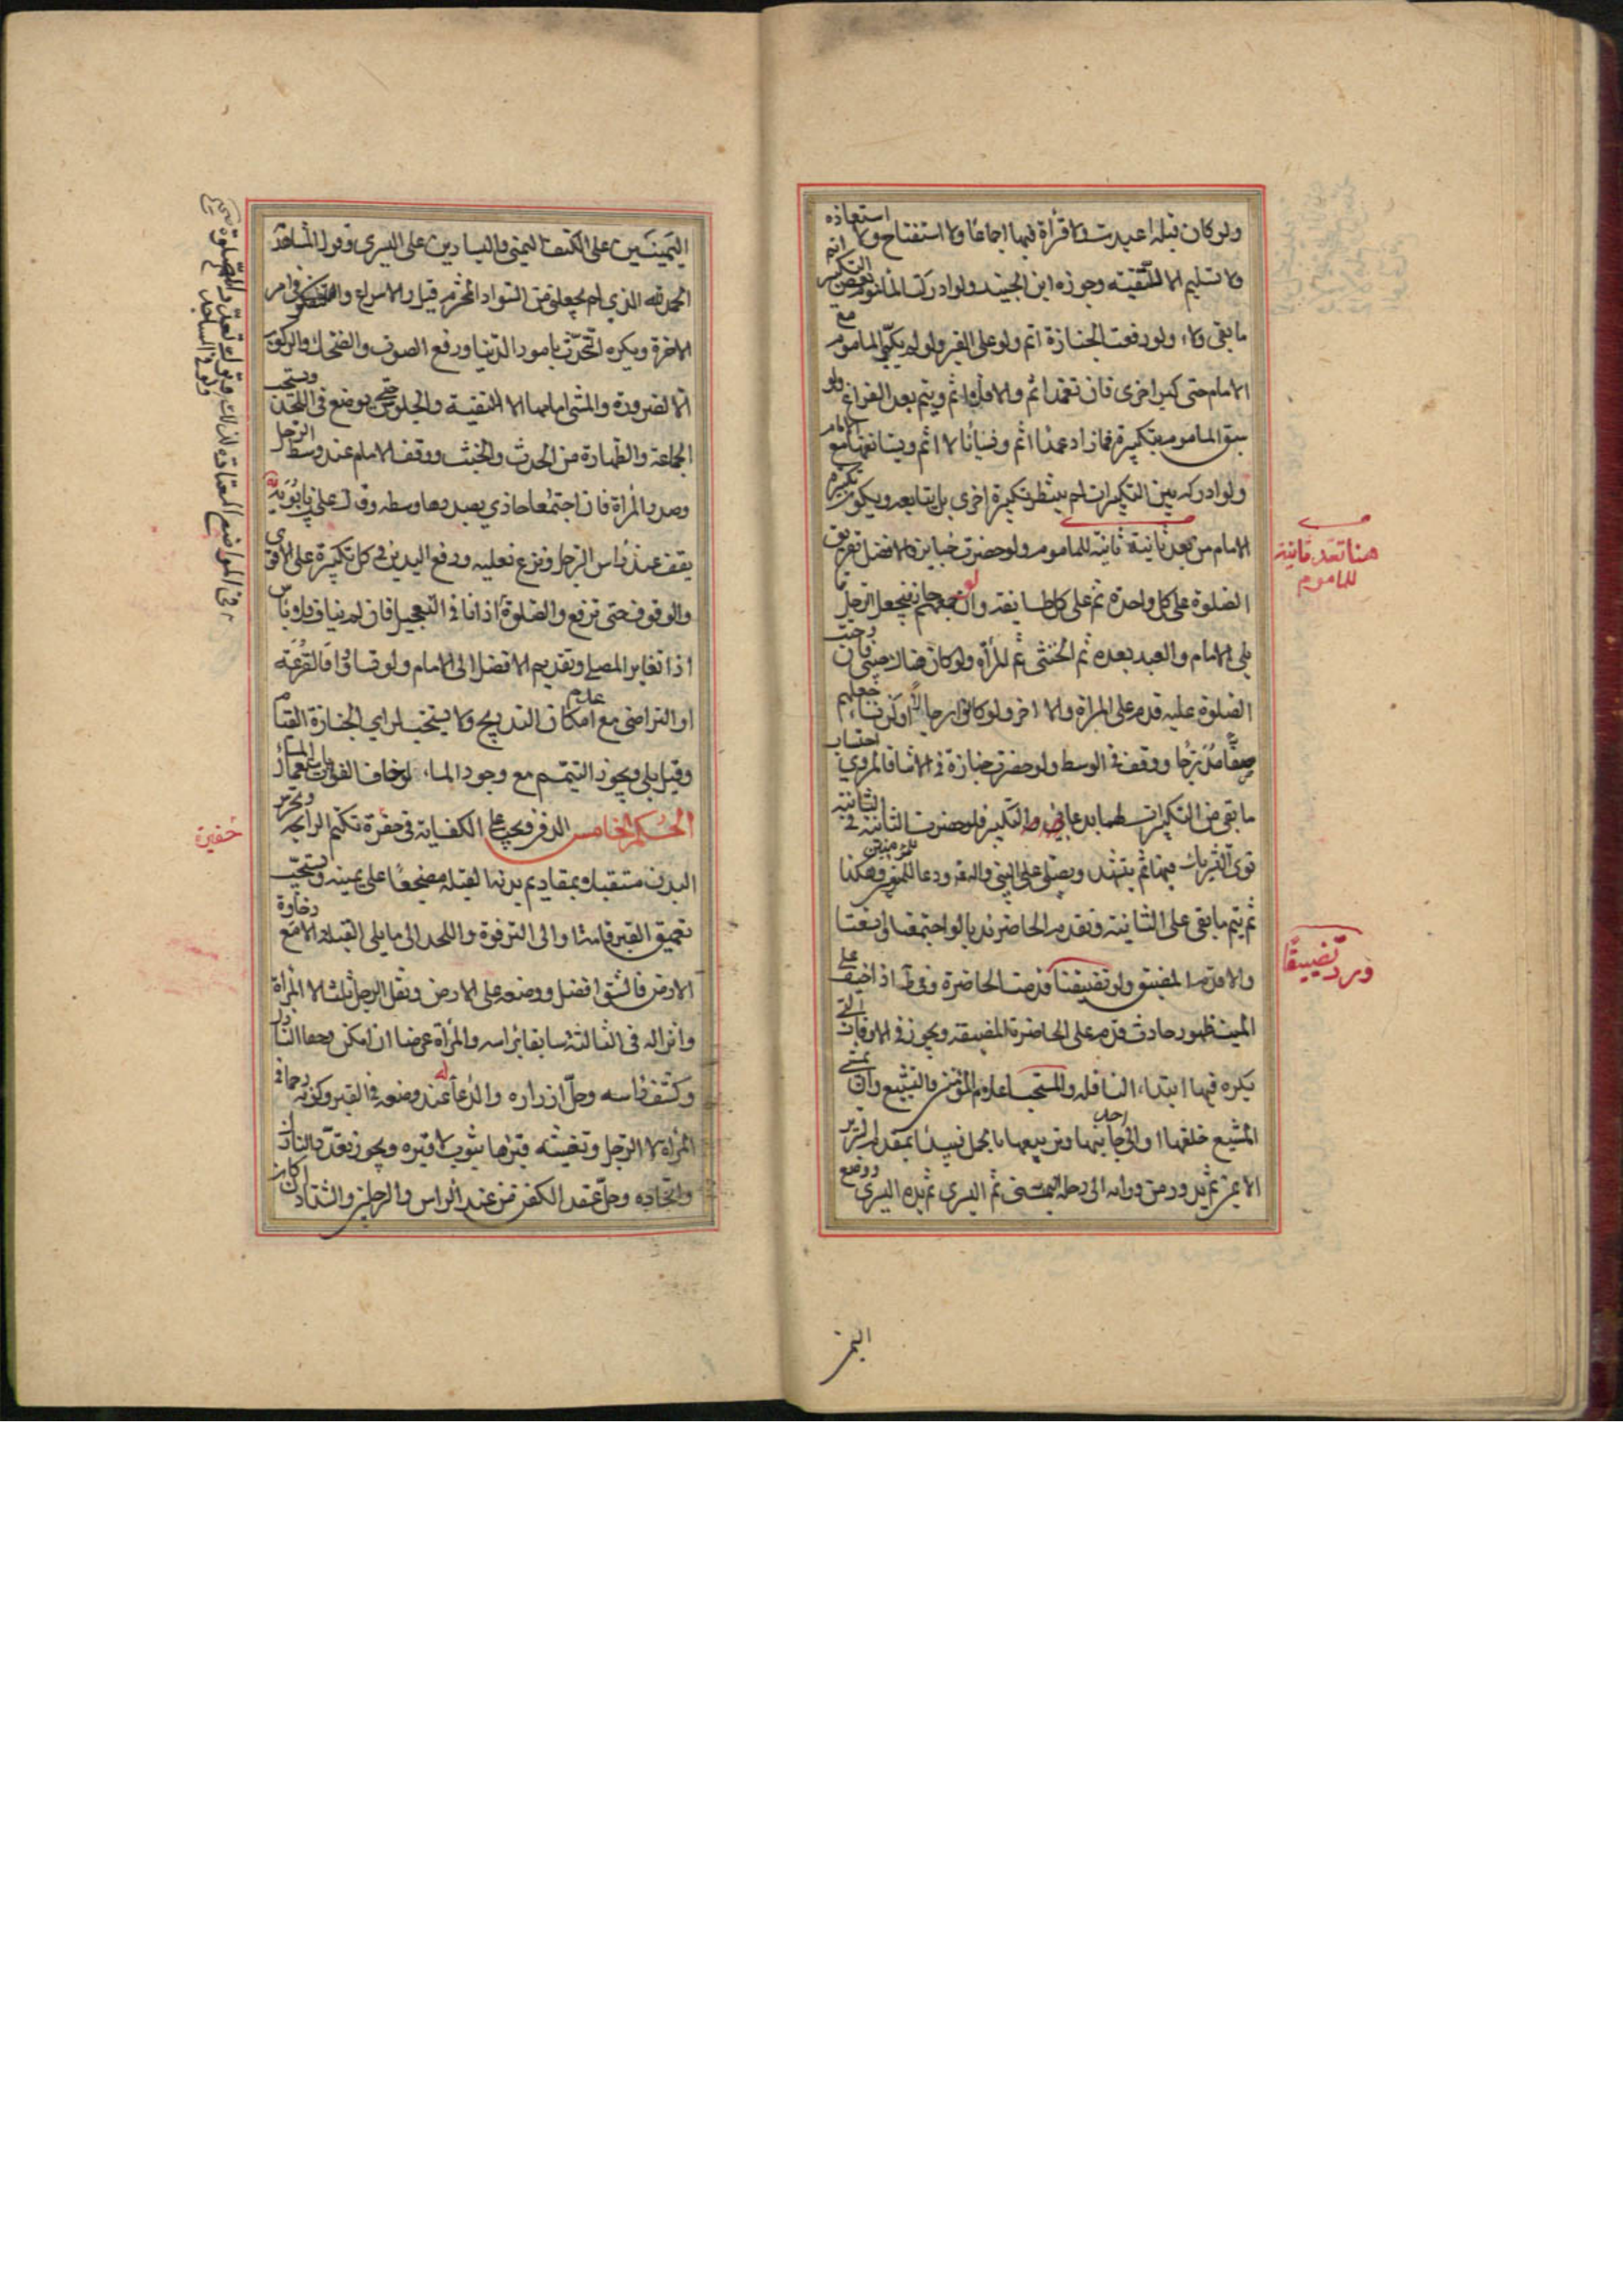 ولو كان قبله اعيدت ولا قرأة فيها اجماعًا ولا استفتاح ولا استعاذه
ولا تسليم الا للتقيّة وجوزه ابن الجنيد ولو ادرك المأموم بعض التكبير اتم
ما بقى ولاء ولو رفعت الجنازة اتم ولو على القبر ولو لم يكبّر الماموم مع
الامام حتى كبر اخرى فان تعمد اثم والا فلا اثم ويتم بعد الفراغ ولو
سبق الماموم بتكبيرة فما زاد عمدًا اثم ونسيانًا لا اثم ويستانفها مع الامام
ولو ادركه بين التكبيرات لم ينتظر تكبيرة اخرى بل يتابعه ويكون تكبيرة
الامام من بعد ثانية ثانية للماموم ولو حضرت جنايز فالافضل تفريق
الصلوة على كل واحدة ثم على كل طايفة ولو جمعهم جاز فيجعل الرجل مما
يلى الامام والعبد بعده ثم الخنثى ثم المرأة ولو كان هناك صبى فان وجبت
الصلوة عليه قدم على المراة والا اخر ولو كانوا رجالًا او كنّ نساء جعلهم
صفا مدرّجا ووقف فى الوسط ولو حضرت جنازة فى الاثناء فالمروي احتساب
ما بقى من التكبيرات لهما فلو حضرت الثانية فى الثانية
نوى التشريك فيها ثم يتشهد ويصلى على النبى وآله ودعا للمؤمنين وهكذا
ثم يتم ما بقى على الثانية وتقدم الحاضرة ندبا لو اجتمعتا واتسعتا
والا قدم المضيق ولو تضيقتا قدمت الحاضرة وفى ط اذا خيف على
الميت ظهور حادث قدم على الحاضرة المضيقة ويجوز فى الاوقات التى
يكره فيها ابتداء النافلة والمستحب اعلام المؤمنين والتشييع وان يمشى
المشيع خلفها او الى احد جانبيها وتربيعها بمقدم السرير
الايمن ثم يدور من ورائه الى رجله اليمنى ثم اليسرى ثم يده اليسرى ووضع
هنا تعد ثانية
للماموم
ورد تضييقًا
اليمينين على الكتف اليمنى واليسارين على اليسرى وقول المشاهد
الحمد لله الذى لم يجعلنى من السواد المخترم قيل والاسراع والتفكر فى امر
الاخرة ويكره التحدّث بامور الدّنيا ورفع الصوت والضحك والركوب
الا لضرورة والمشى امامها الا لتقية والجلوس حتى يوضع فى اللحد ويستحب
الجماعة والطهارة من الحدث والخبث ووقوف الامام عند وسط الرجل
وصدر المرأة فان اجتمعا حاذى بصدرها وسطه وقال على بن بابويه
يقف عند راس الرجل ونزع نعليه ورفع اليدين فى كل تكبيرة على الاقوى
والوقوف حتى ترفع والصلوة اذا نافى التعجيل فان لم يناف فلا باس
اذا تغاير المصلى وتقديم الافضل الى الامام ولو تساووا فالقرعة
او التراضى مع عدم امكان التدريج ولا يستحب لرائى الجنازة القيام
وقيل بلى ويجوز التيمّم مع وجود الماء لو خاف الفوت
الحكم الخامس الدفن ويجب على الكفاية فى حفرة تكتم الرايحة وتحرس
البدن مستقبلا بمقاديم بدنه القبلة مضجعًا على يمينه ويستحبّ
تعميق القبر قامة او الى الترقوة واللحد الى ما يلى القبلة الا مع رخاوة
الارض فالشق افضل ووضعه على الارض ونقل الرجل ثلثا لا المرأة
وانزاله فى الثالثة سابقا براسه والمرأة عرضا ان امكن وحفا النازل
وكشف راسه وحلّ ازراره والدعا له عند وضعه فى القبر وكونه رحما فى
المرأة لا الرجل وتغشية قبرها بثوب لا قبره ويجوز تعدّد النازل
واتحاده وحلّ عقد الكفن من عند الراس والرجلين والشداد ان كان
حفيرة
وفى المواضع المعتادة لذلك
اليمـ